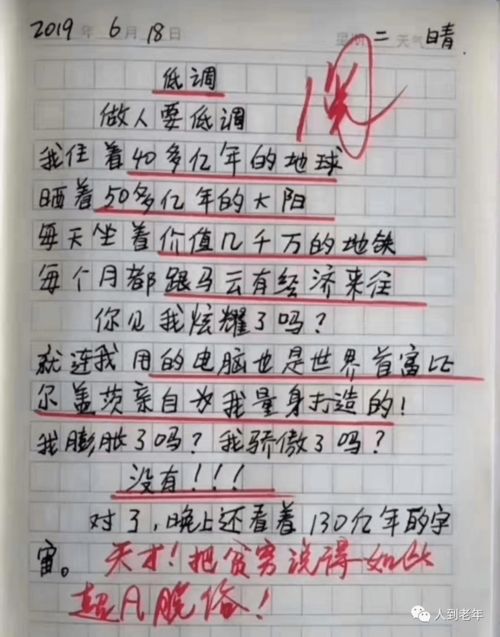 2019年6月18日 星期二 天气晴
低调
阅
做人要低调
我住着40多亿年的地球
晒着50多亿年的大阳
每天坐着价值几千万的地铁
每个月都跟马云有经济来往
你见我炫耀了吗？
就连我用的电脑也是世界首富比
尔盖茨亲自为我量身打造的！
我膨胀了吗？我骄傲了吗？
没有！！！
对了，晚上还看着130亿年的宇
宙。天才！把贫穷说得如此
超凡脱俗！
人到老年